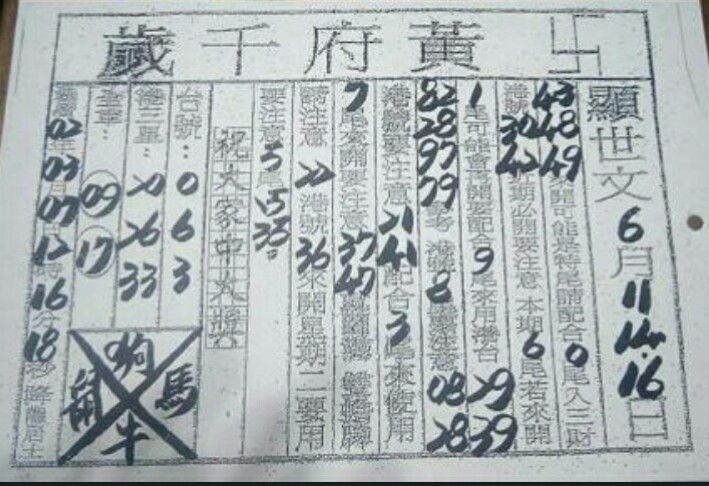 黃府千歲
顯世文6月11 14.16日
43 48 49來開可能是特尾請配合0尾入三財
港號30 42本期必開要注意 本期6尾若來開
1尾可能會再開要配合9尾來用港台29 39
82 28 97 79參考 港號8尾請注意08 28
港號要注意21 41配合3尾來使用
7尾來開要注意37 47
請注意22港號36來開星期二要用
要注意5尾15 35
祝大家中大獎
台號：0 6 3
港三星：20 26 33
全車：09 17
02年03月07日12時16分18秒降
狗
鼠 馬
牛